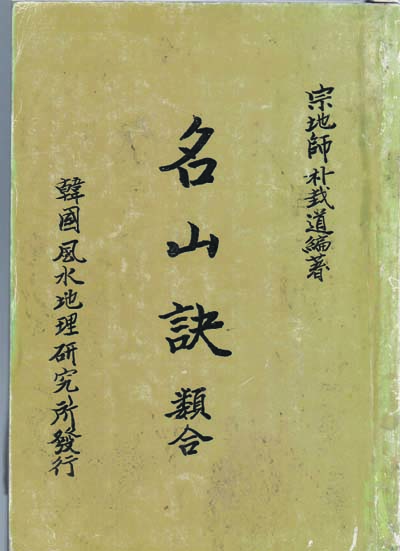 宗地師朴載道編著
名山訣類合
韓國風水地理硏究所發行